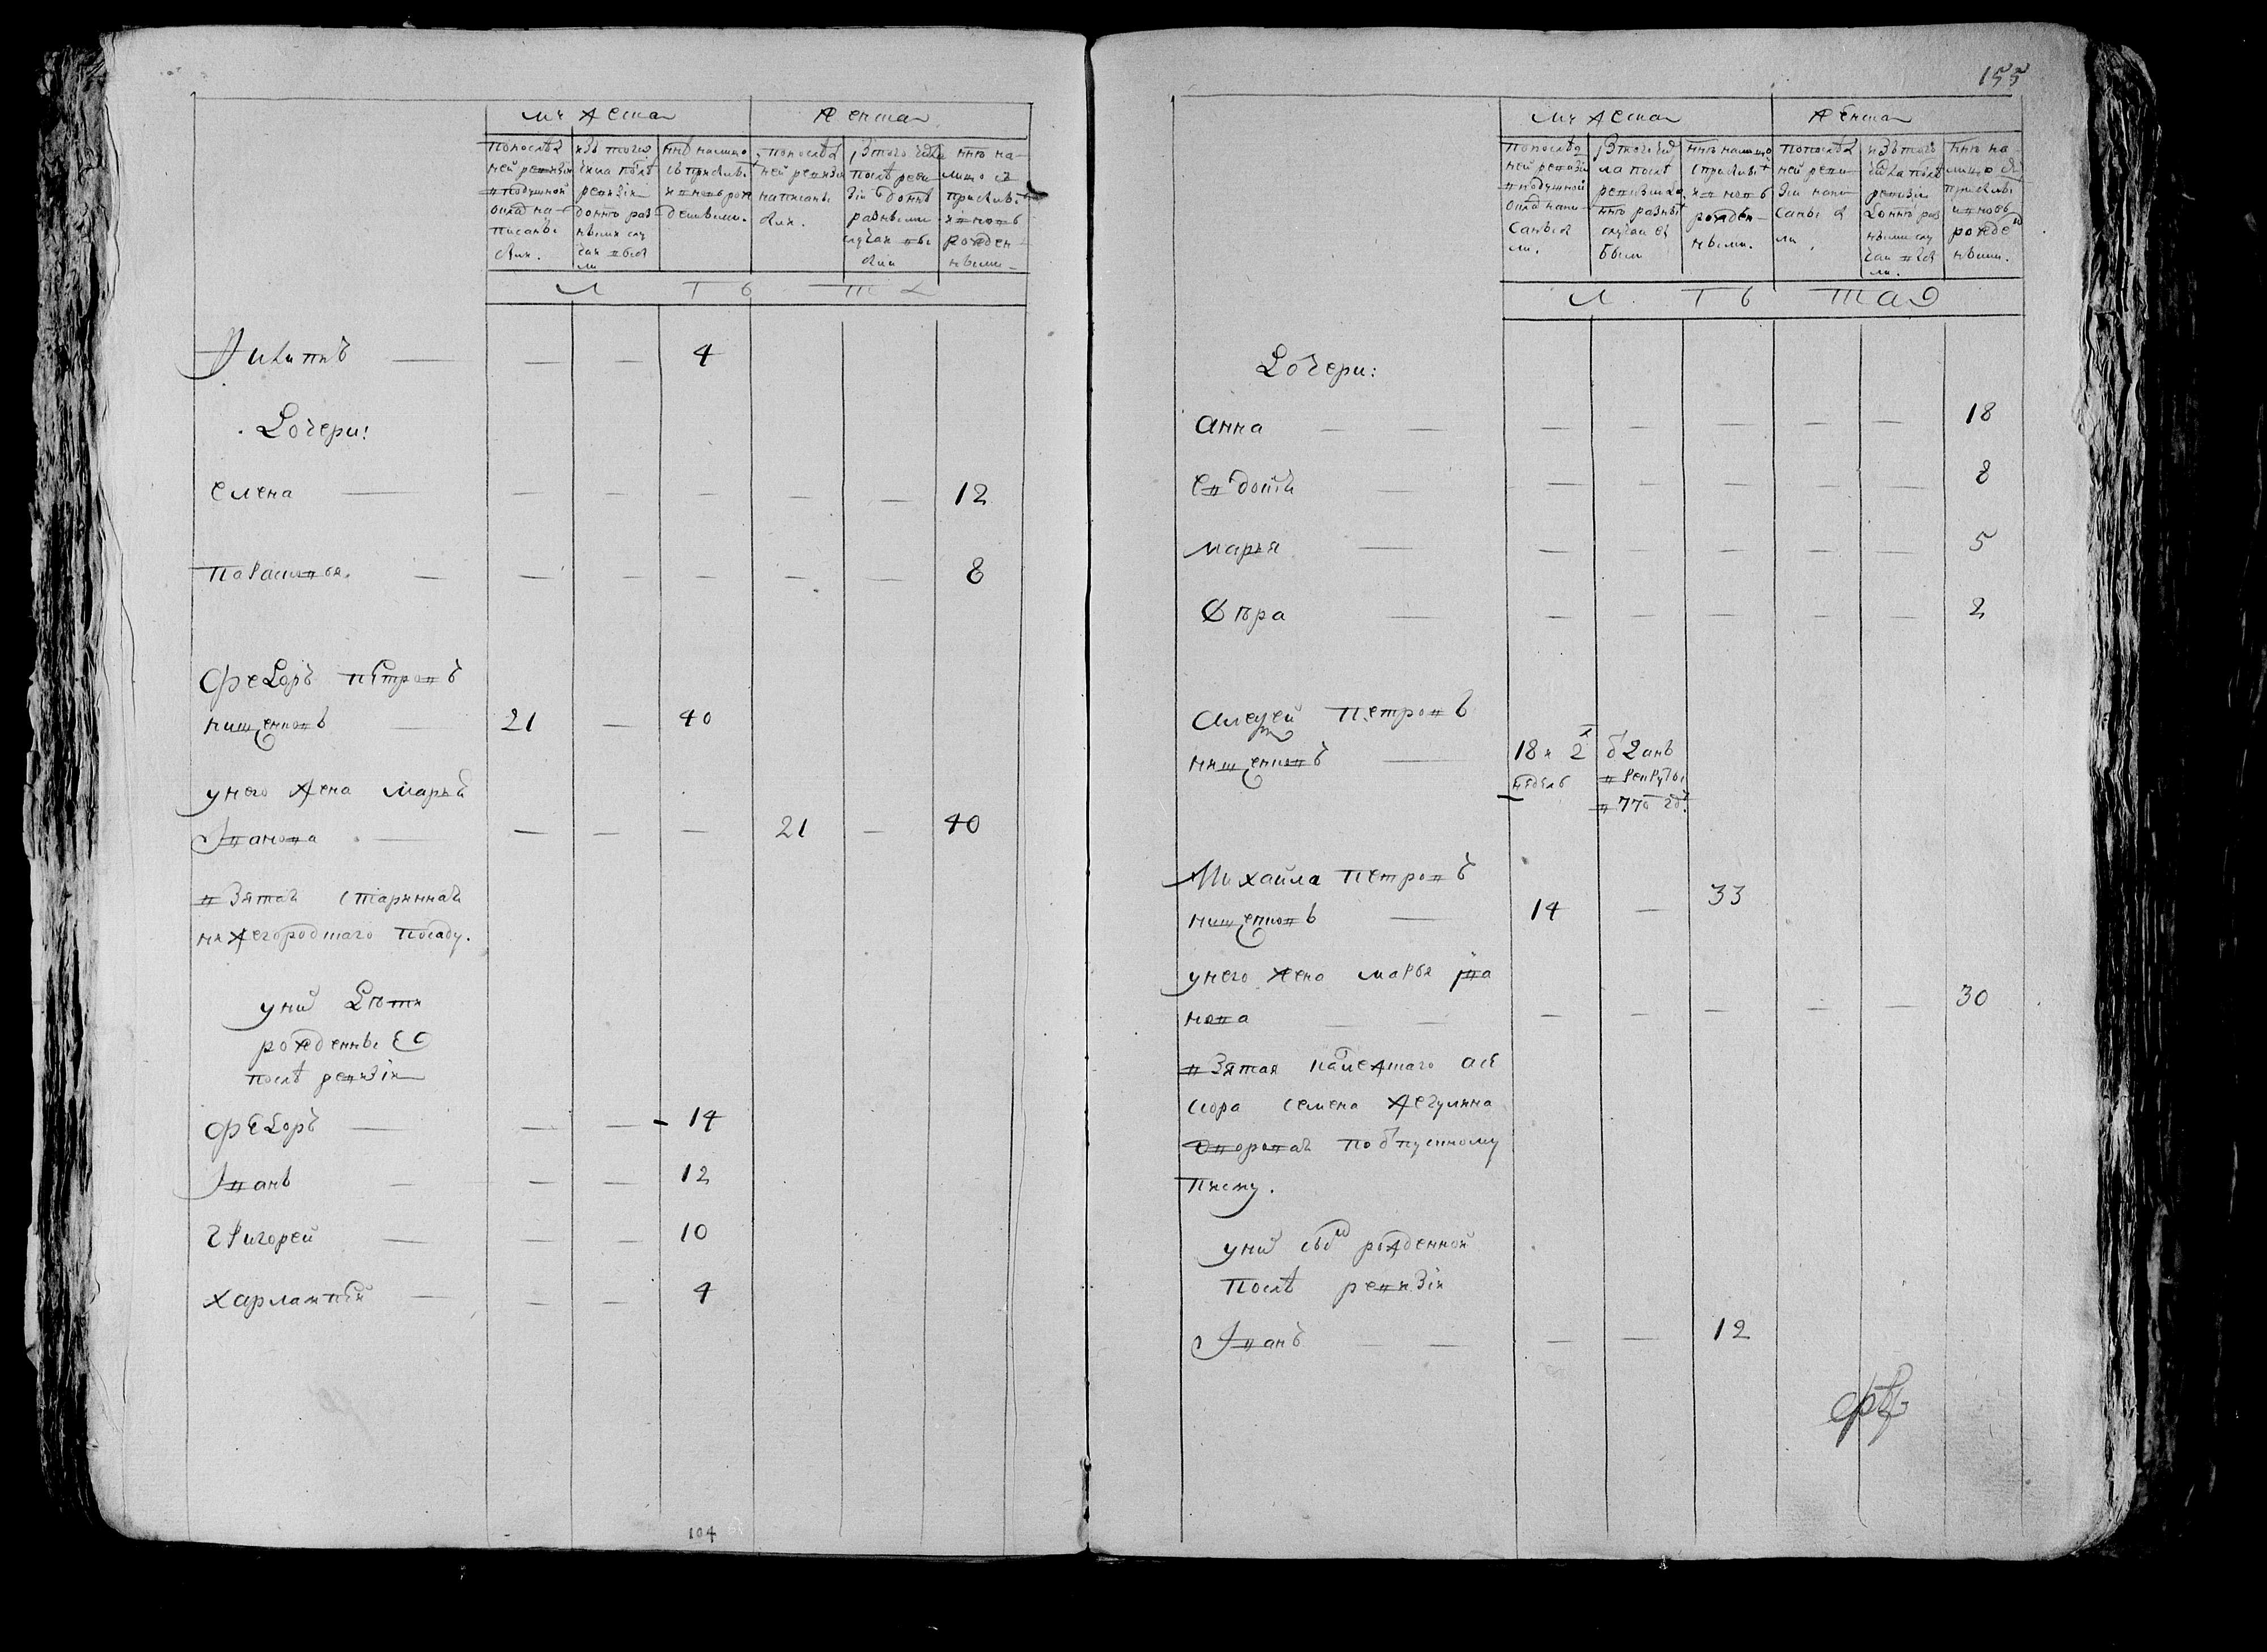 Мужеска
Женска
По послѣд
ней ревизіи
в подушной
оклад на-
писаны
были.
изъ того
числа послѣ
ревизіи
до нынѣ раз
ными слу
чаи выбы
ли
ныне налицо
съ прибылы
и вновь рож
денными.
по послѣд
ней ревизіи
написаны
были.
изтого числа
послѣ реви
зіи до нынѣ
разными
случаи вы
были
ныне на-
лицо съ
прибылы
и вновь
рожден
ными
Лѣта
Филипъ 4
Дочери:
Елена 12
Парасковья 8
Федоръ Петровъ
нищенковъ 21 40
у него жена Марья
Иванова 21 40
взятая старинная
нижегородскаго посаду.
у них дѣти
рожденные
послѣ ревизіи
Федоръ 14
Иванъ 12
Григорей 10
Харлампей 4
104
155
Мужеска
Женска
По послѣд
ней ревизіи
в подушной
оклад напи
саны бы
ли.
изтого чис
ла послѣ
ревизіи до
ныне разны
случаи вы
были
ныне налицо
с прибылы
и вновь
рожден-
ными.
По послѣд
ней реви
зіи напи
саны бы
ли.
изътого
числа послѣ
ревизіи
до ныне раз
ными слу
чаи выбы
ли.
ныне на
лицо съ
прибылы
и вновь
рожде
ными.
Лѣта
Дочери:
Анна 18
Евдотья 8
Марья 5
Фѣра 2
Алексей Петровъ
нищенковъ 18 и 2 отданъ
недель в рекруты
в 770 году
Михайла Петровъ
нищенковъ 14 33
у него жена Марья Ива
нова 30
взятая колежскаго асе
сора Семена Жегулина
дворовая по отпускному
писму.
у них сынъ рожденной
послѣ ревизіи
Иванъ 12